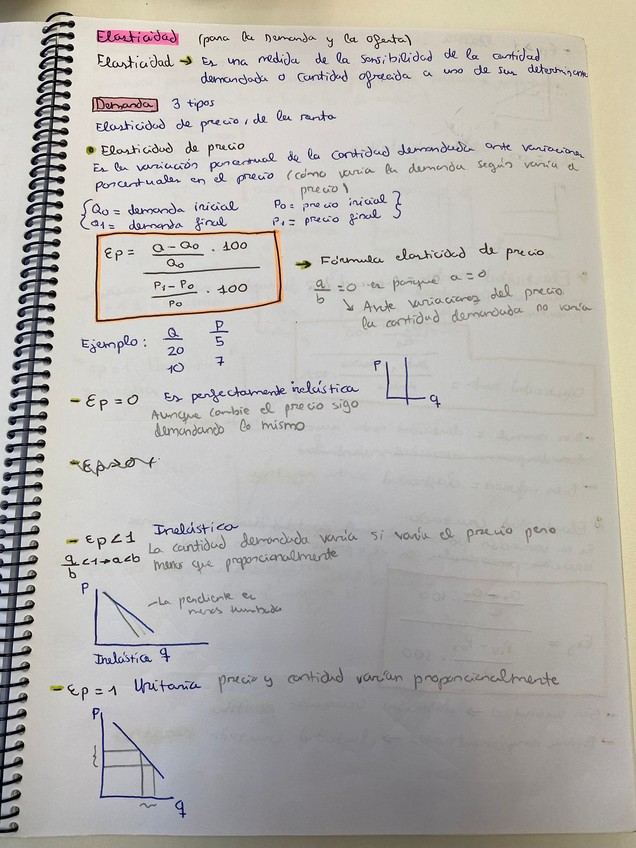 Elasticidad (para la Demanda y la Oferta)
Elasticidad → Es una medida de la sensibilidad de la cantidad
demandada o cantidad ofrecida a uno de sus determinante
Demanda 3 tipos
Elasticidad de precio, de la renta
Elasticidad de precio
Es la variación porcentual de la cantidad demandada ante variaciones
porcentuales en el precio (cómo varía la demanda según varía el
precio)
{Q0 = demanda inicial P0 = precio inicial}
{Q1 = demanda final P1 = precio final}
Ep = Q - Q0 / Q0 · 100
P1 - P0 / P0 · 100
→ Fórmula elasticidad de precio
a/b = 0 es porque a = 0
↳ Ante variaciones del precio
la cantidad demandada no varía
Ejemplo: Q P
20 5
10 7
- Ep = 0 Es perfectamente inelástica
Aunque cambie el precio sigo
demandando lo mismo
P
q
- Ep < 1 Inelástica
La cantidad demandada varía si varía el precio pero
a/b < 1 → a < b menos que proporcionalmente
P
- La pendiente es
menos tumbada
Inelástica q
- Ep = 1 Unitaria precio y cantidad varían proporcionalmente
P
q